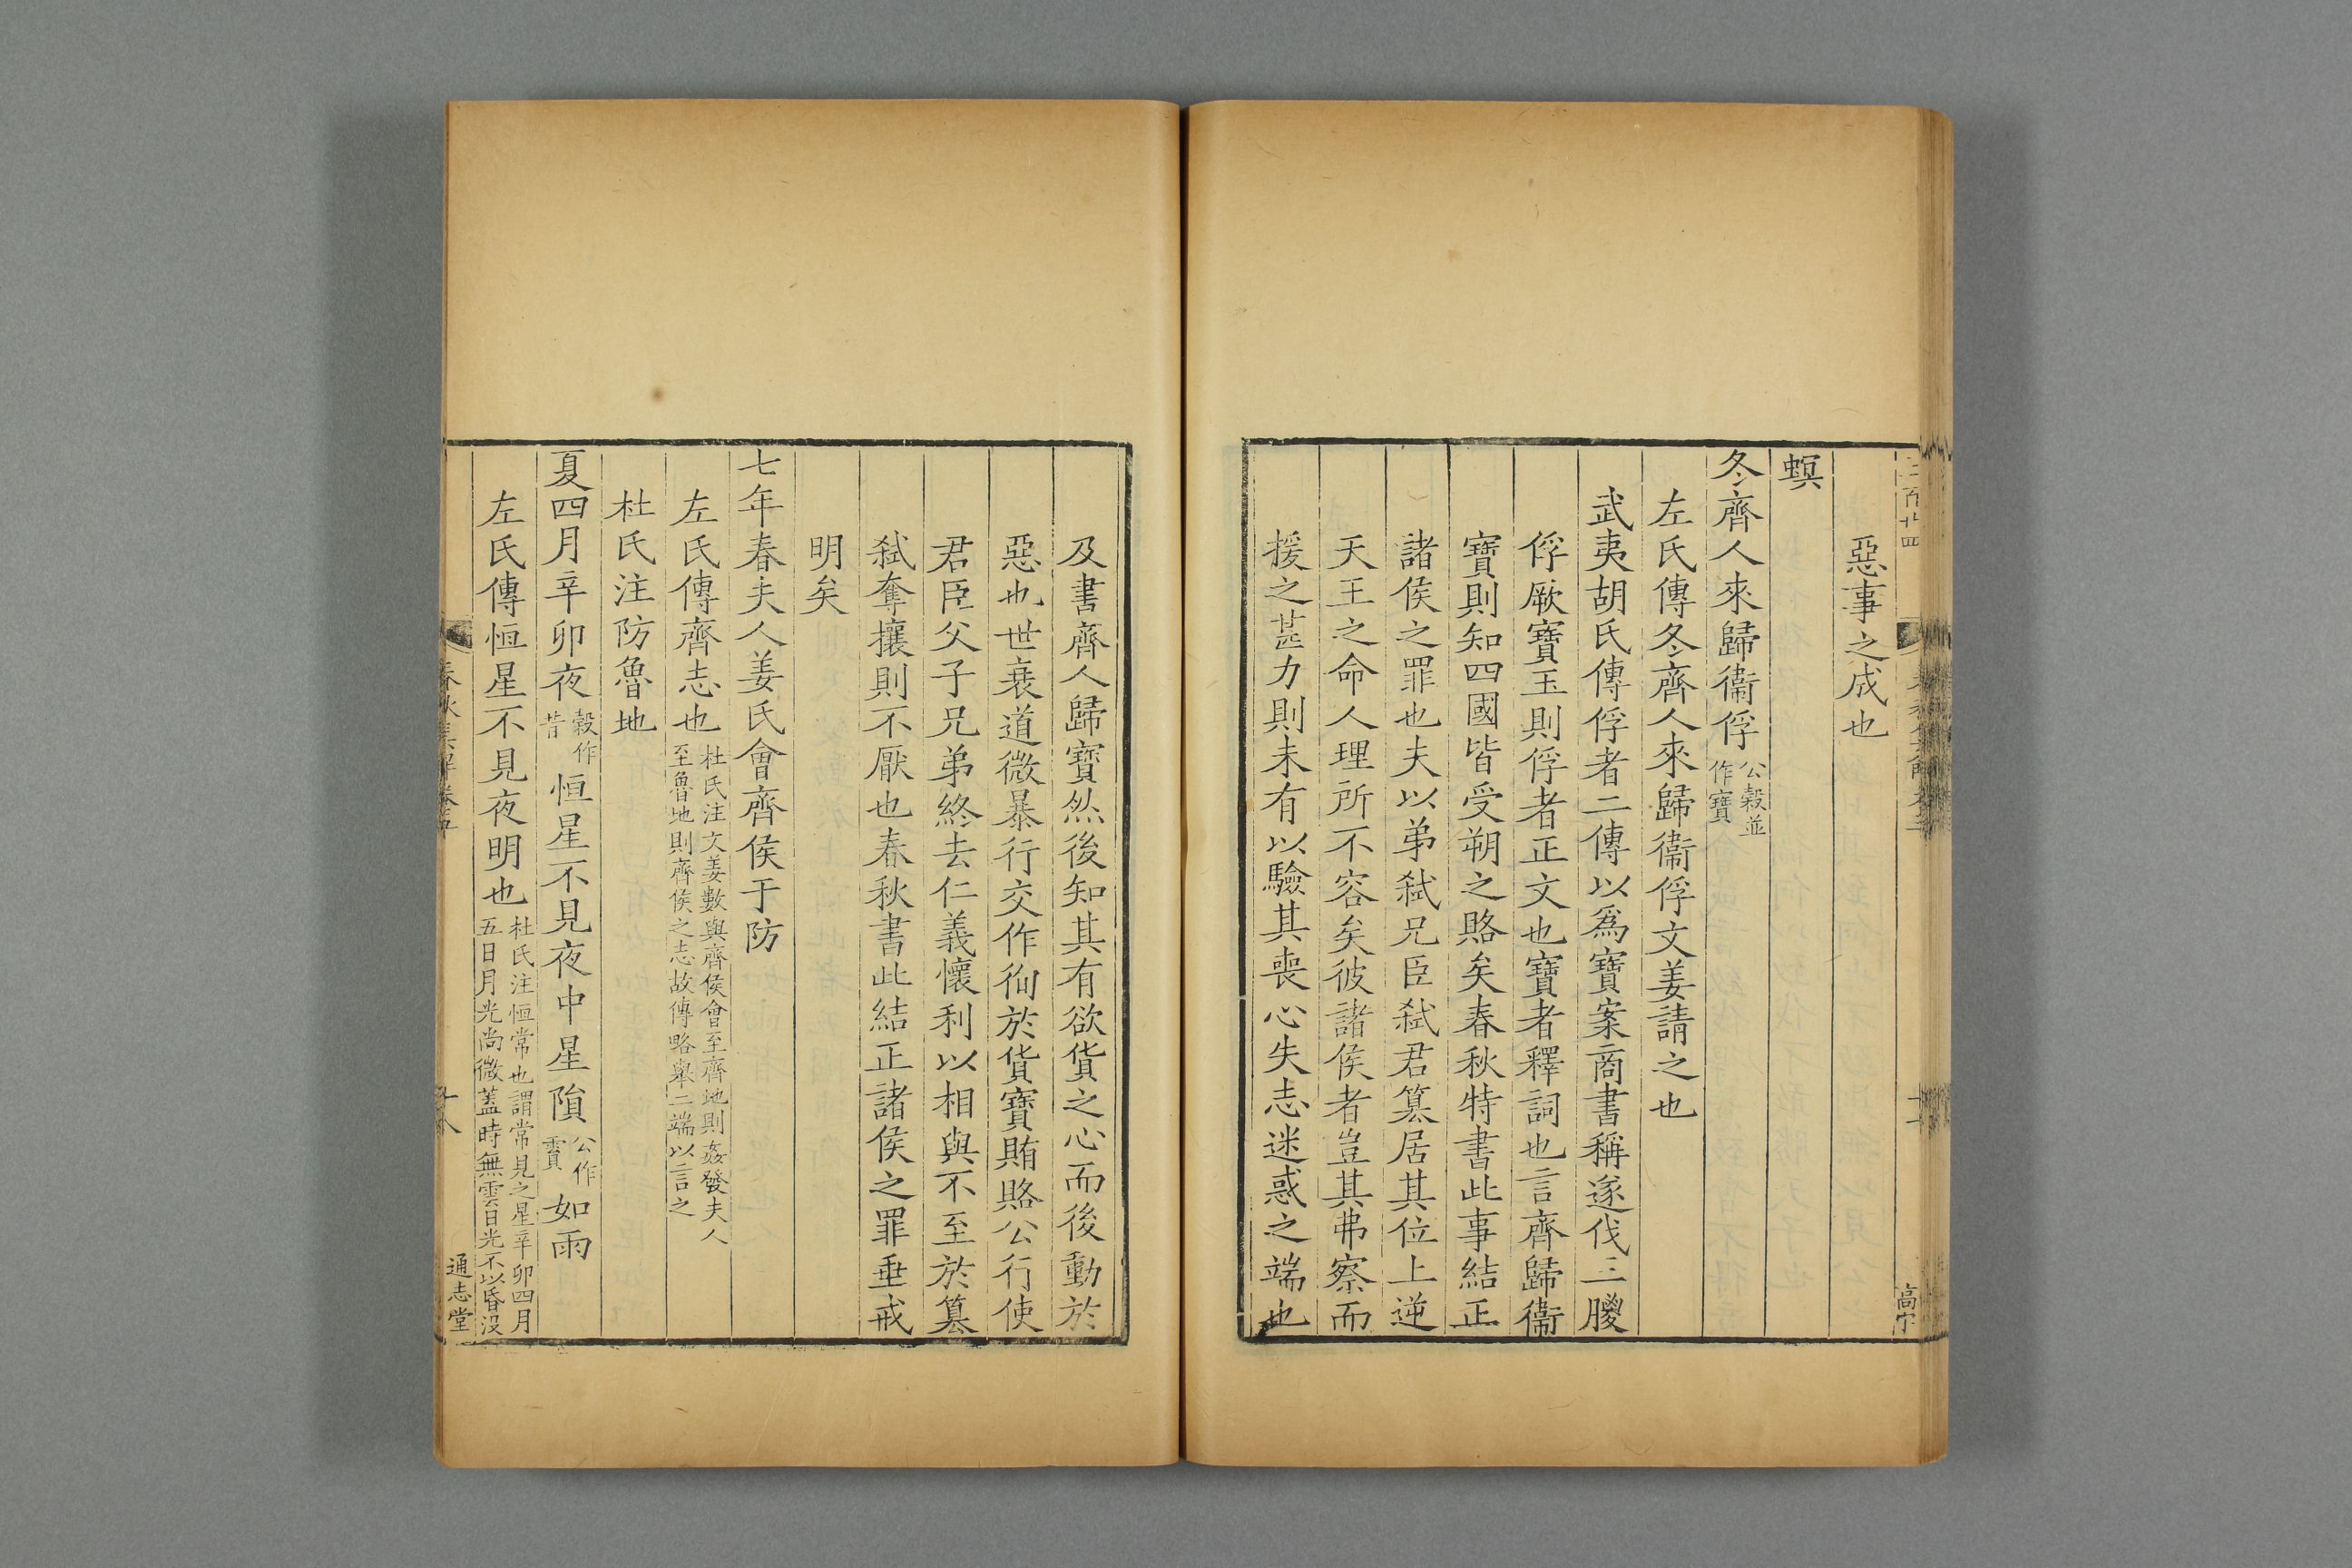 惡事之成也
螟
冬齊人來歸衞俘公穀並作寶
左氏傳冬齊人來歸衞俘文姜請之也
武夷胡氏傳俘者二傳以爲寶案商書稱遂伐三朡
俘厥寶玉則俘者正文也寶者釋詞也言齊歸衞
寶則知四國皆受朔之賂矣春秋特書此事結正
諸侯之罪也夫以弟弑兄臣弑君簒居其位上逆
天王之命人理所不容矣彼諸侯者豈其弗察而
援之甚力則未有以驗其喪心失志迷惑之端也
及書齊人歸寶然後知其有欲貨之心而後動於
惡也世衰道微暴行交作徇於貨寶賄賂公行使
君臣父子兄弟終去仁義懷利以相與不至於簒
弑奪攘則不厭也春秋書此結正諸侯之罪垂戒
明矣
七年春夫人姜氏會齊侯于防
左氏傳齊志也杜氏注文姜數與齊侯會至齊地則姦發夫人至魯地則齊侯之志故傳略舉二端以言之
杜氏注防魯地
夏四月辛卯夜穀作昔恒星不見夜中星隕公作霣如雨
左氏傳恒星不見夜明也杜氏注恒常也謂常見之星辛卯四月五日月光尚微蓋時無雲日光不以昏沒
通志堂